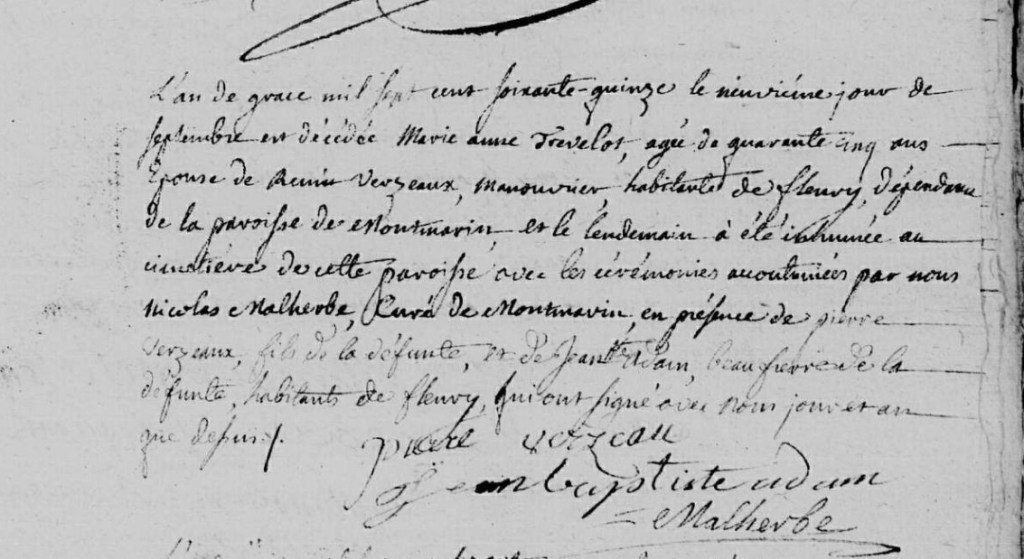 L'an de grace mil sept cent soixante-quinze le neuviéme jour de
septembre est décédée Marie anne Trevelot, agée de quarante cinq ans
Epouse de Remi Verzeaux, Manouvrier, habitante de fleury, dépendance
de la paroisse de Montmarin, et le lendemain à été inhumée au
cimetière de cette paroisse avec les cérémonies accoutumées par nous
Nicolas Malherbe, Curé de Montmarin, en présence de pierre
Verzeaux, fils de la défunte, et de Jean Bte Adam, beaufrere de la
défunte, habitants de fleury, qui ont signé avec nous jour et an
que dessus.
pierre verzeau
Jean baptiste adam
Malherbe